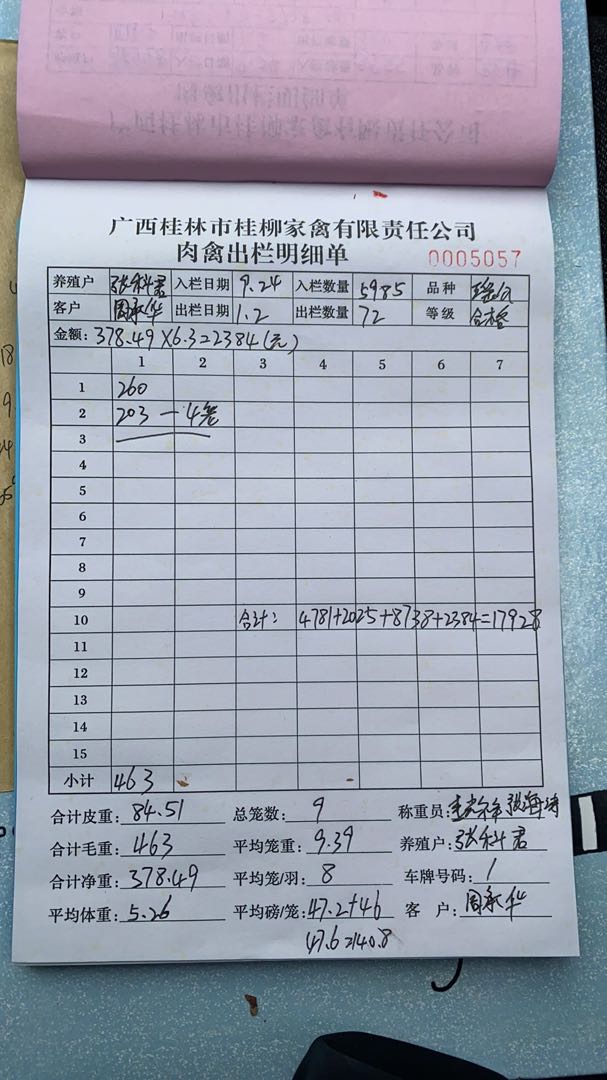 广西桂林市桂柳家禽有限责任公司
肉禽出栏明细单
0005057
养殖户 张科君 入栏日期 9.24 入栏数量 5985 品种
客户 周承华 出栏日期 1.2 出栏数量 72 等级 合格
金额：378.49×6.3=2384(元)
1 2 3 4 5 6 7
1 260
2 203 一4笼
3
4
5
6
7
8
9
10 合计： 4781+2025+8738+2384=17928
11
12
13
14
15
小计 463
合计皮重：84.51 总笼数：9 称重员：
合计毛重：463 平均笼重：9.39 养殖户：张科君
合计净重：378.49 平均笼/羽：8 车牌号码：1
平均体重：5.26 平均磅/笼：47.2+46 客 户：周承华
47.6=140.8